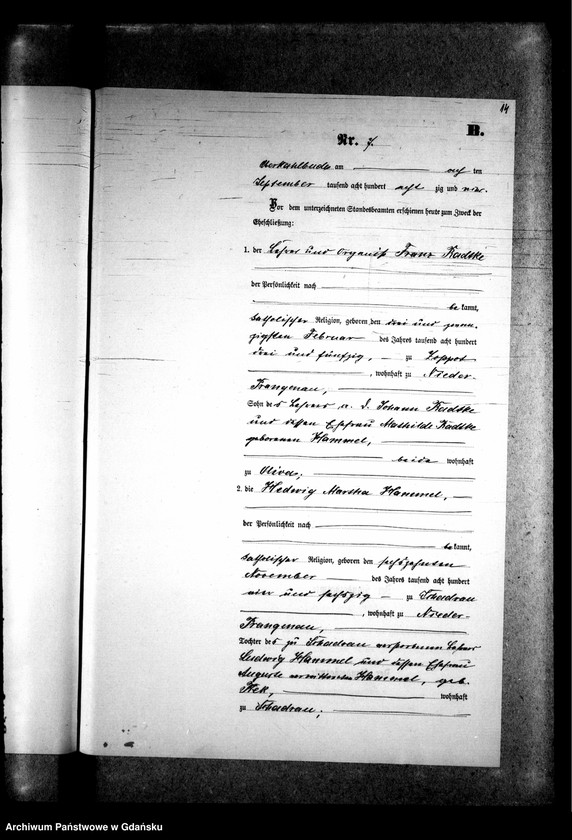 14
B.
Nr. 7.
Oberkahlbude am acht ten
September tausend acht hundert acht zig und vier.
Vor dem unterzeichneten Standesbeamten erschienen heute zum Zweck der
Eheschließung:
1. der Lehrer und Organist Franz Radtke
der Persönlichkeit nach
be kannt,
katholischer Religion, geboren den drei und zwan-
zigsten Februar des Jahres tausend acht hundert
drei und fünfzig, zu Zoppot
, wohnhaft zu Nieder-
Prangenau,
Sohn des Lehrers a. D. Johann Radtke
und dessen Ehefrau Mathilde Radtke
geborenen Hammel,
beide wohnhaft
zu Oliva;
2. die Hedwig Martha Hammel,
der Persönlichkeit nach
be kannt,
katholischer Religion, geboren den sechszehnten
November des Jahres tausend acht hundert
vier und sechszig zu Schadrau
, wohnhaft zu Nieder-
Prangenau,
Tochter des zu Schadrau verstorbenen Lehrers
Ludwig Hammel und dessen Ehefrau
Auguste verwittweten Hammel, geb.
wohnhaft
zu Schadrau;
Archiwum Państwowe w Gdańsku